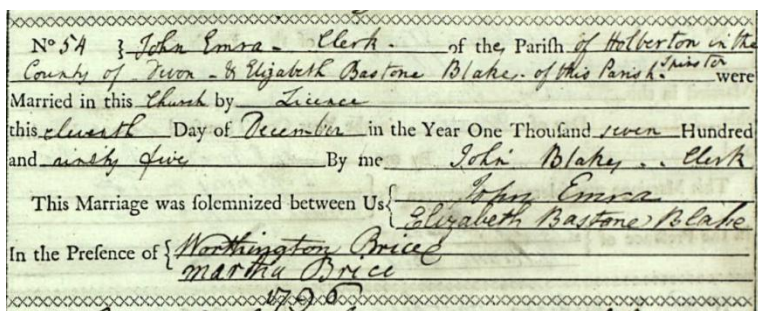 No 54 } John Emra - Clerk - of the Pariſh of Holberton in the
County of Devon - & Elizabeth Bastone Blake - of this Parish Spinster were
Married in this Church by Licence
this eleventh Day of December in the Year One Thouſand seven Hundred
and ninety five By me John Blake - Clerk
This Marriage was ſolemnized between Us { John Emra
Elizabeth Bastone Blake
In the Preſence of { Worthington Brice
Martha Brice
1796